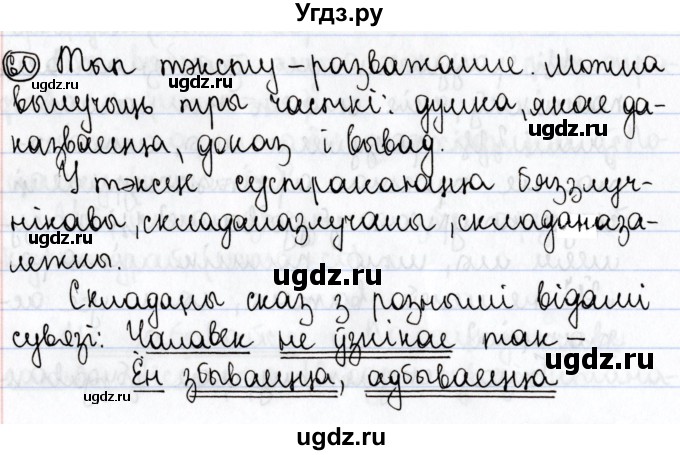 Угдз.ру
60 Тып тэксту – разважанне. Можна
вылучыць тры часткі: думка, якая да-
казваецца, доказ і вывад.
У тэксце сустракаюцца бяззлуч-
нікавы, складаназлучаны, складаназа-
лежны.
Складаны сказ з рознымі відамі
сувязі: Чалавек не ўзнікае так –
Ён збываецца, адбываецца
ugdz.ru
ugdz.ru
ugdz.ru
ugdz.ru
ugdz.ru
ugdz.ru
ugdz.ru
ugdz.ru
ugdz.ru
ugdz.ru